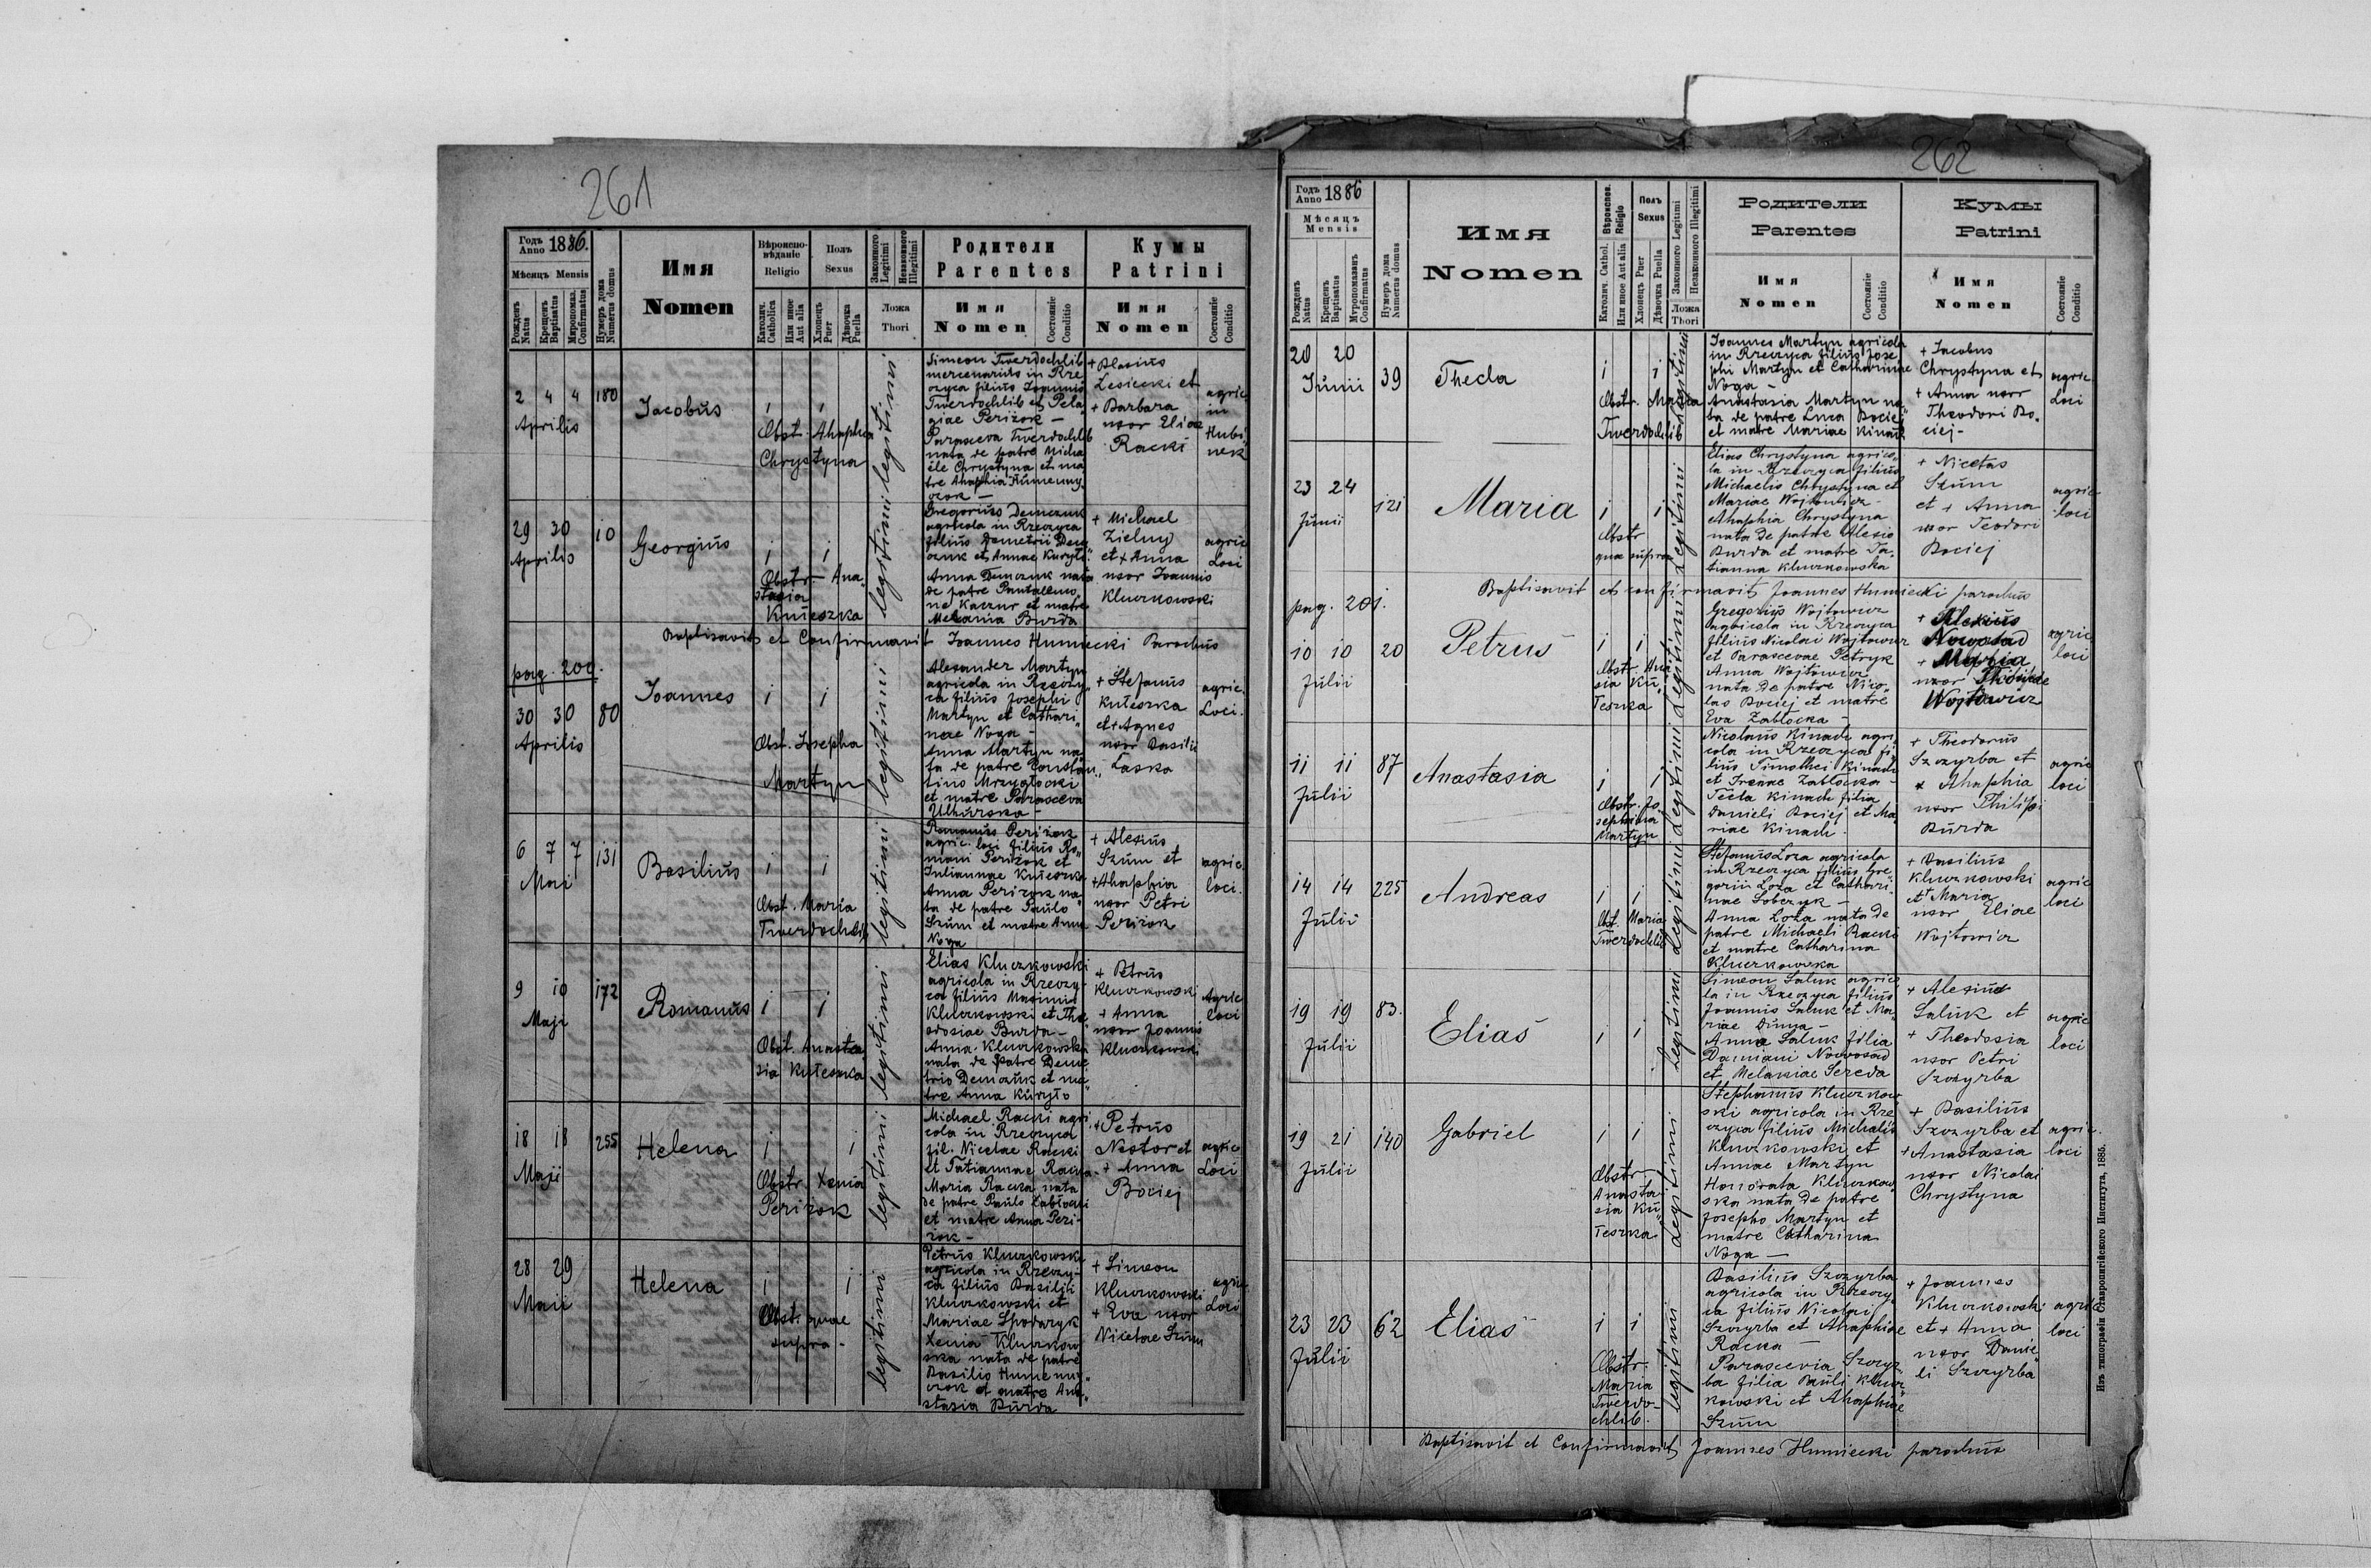 261
Годъ Anno 1886.
Мѣсяцъ Mensis
Рожденъ Natus
Крещенъ Baptisatus
Миропомаз. Confirmatus
Нумеръ дома Numerus domus
Имя
Nomen
Вѣроиспо-
вѣданіе
Religio
Католич. Catholica
Или иное Aut alia
Полъ
Sexus
Хлопецъ Puer
Дѣвочка Puella
Законного Legitimi
Незаконного Illegitimi
Ложа
Thori
Родители
Parentes
Имя
Nomen
Состояніе Conditio
Кумы
Patrini
Имя
Nomen
Состояніе Conditio
2 4 4 180
Aprilis
Jacobus
i i
Obst. Ahaphia
Chrystyna
legitimi
Simeon Twerdochlib
mercenarius in Rze
czyca filius Joannis
Twerdochlib et Pela
giae Perizok —
Parasceva Twerdochlib
nata de patre Micha
ele Chrystyna et ma
tre Ahaphia Humenny
czok —
+ Blasius
Lesiecki et
+ Barbara
uxor Eliae
Racki
agric
in
Hubi
nek
29 30 10
Aprilis
Georgius
i i
Obstr. Ana
stasia
Kułeszka
legitimi
Gregorius Demczuk
agricola in Rzeczyca
filius Demetrii Dem
czuk et Annae Kuryło
Anna Demczuk nata
de patre Pantalemo
ne Kaczur et matre
Melania Burda
+ Michael
Zielny
et + Anna
uxor Joannis
Kluczkowski
agric
Loci
Baptisavit et Confirmavit Joannes Humiecki Parochus
pag. 200.
30 30 80
Aprilis
Joannes
i i
Obst. Josepha
Martyn
legitimi
Alexander Martyn
agricola in Rzeczy
ca filius Josephi
Martyn et Cathari
nae Noga —
Anna Martyn na
ta de patre Constan
tino Mrzygłocki
et matre Parasceva
Uhurska —
+ Stefanus
Kułeszka
et + Agnes
uxor Basilii
Laska
agric.
Loci.
6 7 7 131
Maii
Basilius
i i
Obst. Maria
Twerdochlib
legitimi
Romanus Perizok
agric. loci filius Ro
mani Perizok et
Juliannae Kułeszka
Anna Perizok na
ta de patre Paulo
Szum et matre Anna
Noga
+ Alexius
Szum et
+ Ahaphia
uxor Petri
Perizok
agric.
loci.
9 10 172
Maji
Romanus
i i
Obst. Anasta
sia Kułeszka
legitimi
Elias Kluczkowski
agricola in Rzeczy
ca filius Maximi
Kluczkowski et The
odosiae Burda —
Anna Kluczkowska
nata de patre Deme
trio Demczuk et ma
tre Anna Kuryło
+ Petrus
Kluczkowski
+ Anna
uxor Joannis
Kluczkowski
Agric
loci
18 18 255
Maji
Helena
i i
Obstr. Xenia
Perizok
legitimi
Michael Racki agri
cola in Rzeczyca
fil. Nicetae Racki
et Tatiannae Racka
Maria Racka nata
de patre Paulo Zabłocki
et matre Anna Peri
zok —
+ Petrus
Nestor et
+ Anna
Bociej
agric
Loci
28 29
Maii
Helena
i i
Obst. quae
supra -
legitimi
Petrus Kluczkowski
agricola in Rzeczy
ca filius Basilii
Kluczkowski et
Mariae Spodaryk
Xenia Kluczkow
ska nata de patre
Basilio Humenny
czok et matre Ana
stasia Burda
+ Simeon
Kluczkowski
+ Eva uxor
Nicetae Szum
agric
Loci
262
Годъ Anno 1886
Мѣсяцъ
Mensis
Рожденъ Natus
Крещенъ Baptisatus
Муропомазанъ Confirmatus
Нумеръ дома Numerus domus
Имя
Nomen
Вѣроиспов. Religio
Католич. Cathol.
Или иное Aut alia
Полъ
Sexus
Хлопецъ Puer
Дѣвочка Puella
Законного Legitimi
Незаконного Illegitimi
Ложа
Thori
Родители
Parentes
Имя
Nomen
Состояніе Conditio
Кумы
Patrini
Имя
Nomen
Состояніе Conditio
20 20 39
Junii
Thecla
i i
Obstr. Maria
Twerdochlib
legitimi
Joannes Martyn agricola
in Rzeczyca filius Jose
phi Martyn et Catharinae
Noga —
Anastasia Martyn na
ta de patre Luca Bociej
et matre Mariae Kinach
+ Jacobus
Chrystyna et
+ Anna uxor
Theodori Bo
ciej -
agric
Loci
23 24 121
Junii
Maria
i i
Obstr
qua supra
Legitimi
Elias Chrystyna agrico
la in Rzeczyca filius
Michaelis Chrystyna et
Mariae Wojtowicz -
Ahaphia Chrystyna
nata de patre Alexio
Burda et matre Ta
tianna Kluczkowska
+ Nicetas
Szum
et + Anna
uxor Teodori
Bociej
agric
loci
Baptisavit et confirmavit Joannes Humiecki parochus
pag. 201.
10 10 20
Julii
Petrus
i i
Obstr. Ana
sia Ku
łeszka
Legitimi
Gregorius Wojtowicz
agricola in Rzeczyca
filius Nicolai Wojtowicz
et Parascevae Petryk
Anna Wojtowicz
nata de patre Nico
lao Bociej et matre
Eva Zabłocka —
+ Alexius
Nowosad
+ Maria
uxor
Wojtowicz
agric
loci
11 11 87
Julii
Anastasia
i i
Obstr. Jo
sephina
Martyn
Legitimi
Nicolaus Kinach agri
cola in Rzeczyca fi
lius Timothei Kinach
et Irenae Zabłocka -
Tecla Kinach filia
Danieli Bociej et Ma
riae Kinach -
+ Theodorus
Szczyrba et
+ Ahaphia
uxor Philippi
Burda
agric
loci
14 14 225
Julii
Andreas
i i
Obst. Maria
Twerdochlib
Legitimi
Stefanus Loza agricola
in Rzeczyca filius Gre
gorii Loza et Cathari
nae Sobczyk —
Anna Loza nata de
patre Michaeli Racki
et matre Catharina
Kluczkowska
+ Basilius
Kluczkowski
et + Maria
uxor Eliae
Wojtowicz
agric
loci
19 19 83.
Julii
Elias
i i
Legitimi
Simeon Saluk agrico
la in Rzeczyca filius
Joannis Saluk et Ma
riae Duma —
Anna Saluk filia
Damiani Nowosad
et Melaniae Sereda
+ Alexius
Saluk et
+ Theodosia
uxor Petri
Szczyrba
agric
loci
19 21 140
Julii
Gabriel
i i
Obstr
Anasta
sia Ku
łeszka
Legitimi
Stephanus Kluczkow
ski agricola in Rze
czyca filius Michaelis
Kluczkowski et
Annae Martyn
Honorata Kluczkow
ska nata de patre
Josepho Martyn et
matre Catharina
Noga —
+ Basilius
Szczyrba et
+ Anastasia
uxor Nicolai
Chrystyna
agric.
loci
23 23 62
Julii
Elias
i i
Obstr.
Maria
Twerdo-
chlib.
legitimi
Basilius Szczyrba
agricola in Rzeczy
ca filius Nicolai
Szczyrba et Ahaphiae
Racka —
Parascevia Szczyr
ba filia Pauli Klucz
kowski et Ahaphiae
Szum
+ Joannes
Kluczkowski
et + Anna
uxor Danie
li Szczyrba
agric
loci
Baptisavit et Confirmavit Joannes Humiecki parochus
Изъ типографіи Ставропигійского Института, 1885.